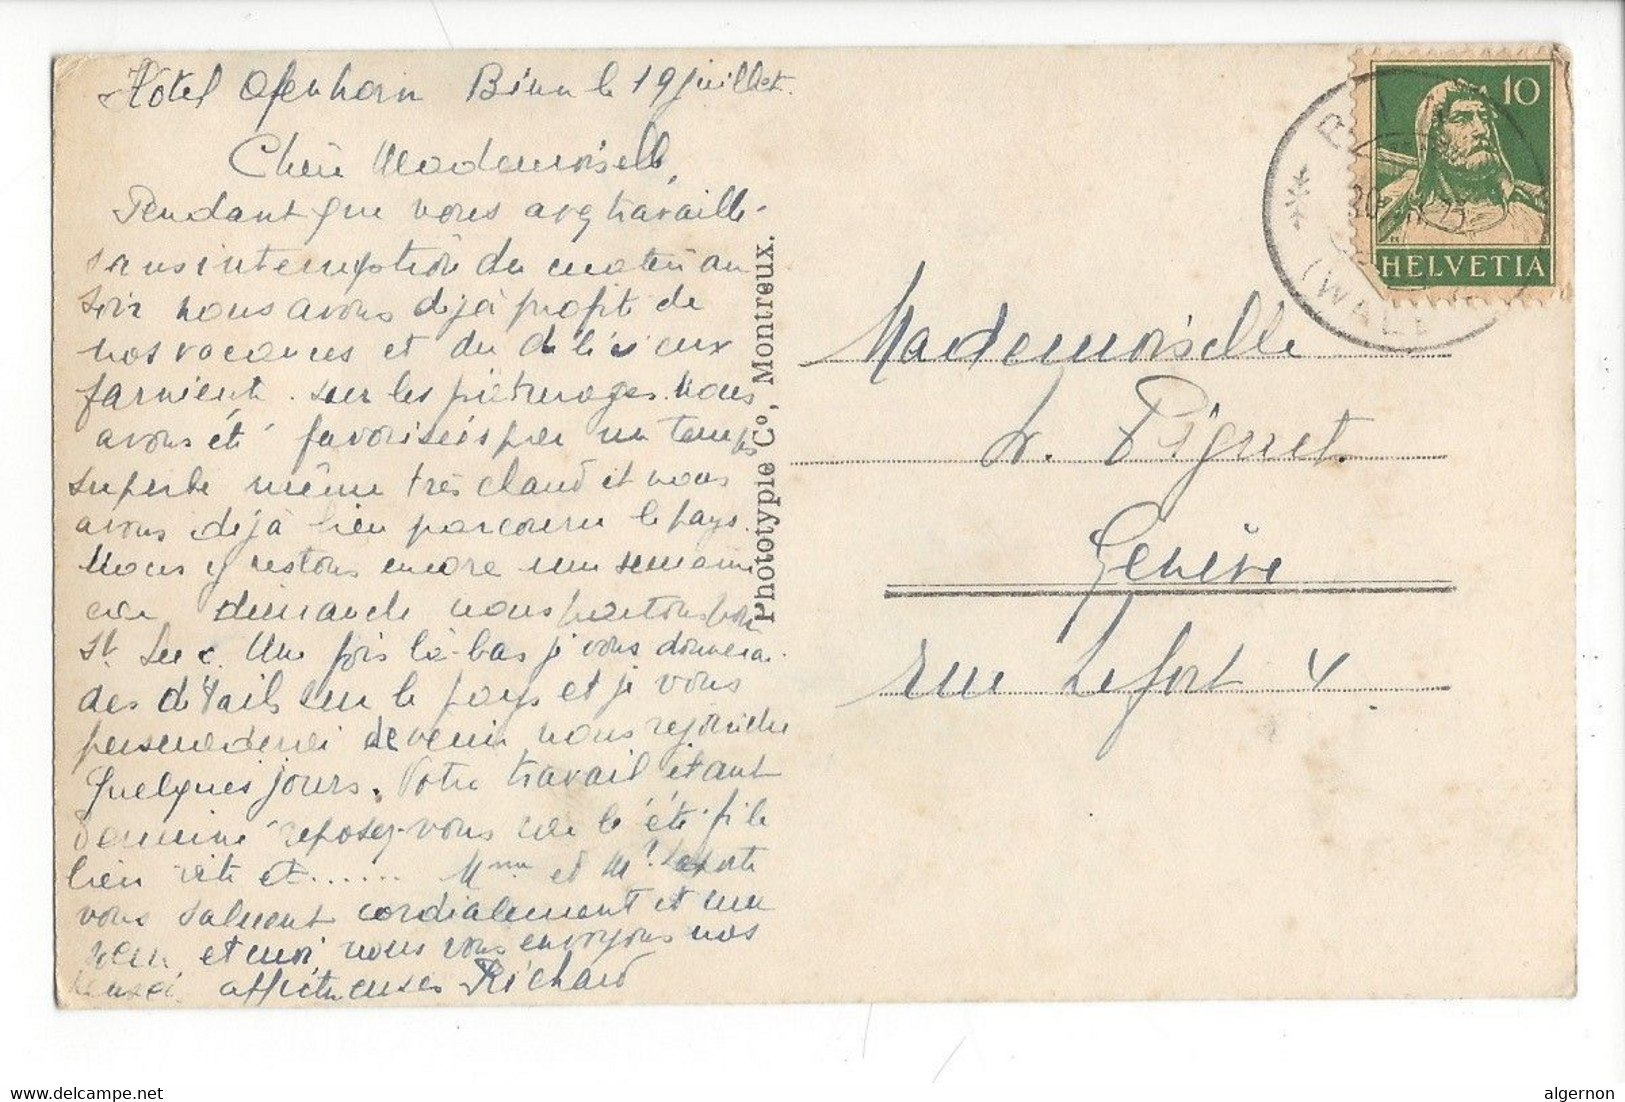 Hôtel Ofenhorn Binn le 19 juillet.
Chère Mademoiselle,
Pendant que vous avez travaillé
sans interruption du matin au
soir nous avons déjà profité de
nos vacances et du délicieux
farniente sur les pâturages. Nous
avons été favorisées par un temps
superbe même très chaud et nous
avons déjà bien parcouru le pays.
Nous y restons encore une semaine
car dimanche nous partons pour
St. Luc. Une fois là-bas je vous donnerai
des détails sur le pays et je vous
persuaderai de venir nous rejoindre
quelques jours. Votre travail étant
terminé reposez-vous car l'été file
bien vite et...... Mme et Mr
vous saluent cordialement et ma
sœur et moi, nous vous envoyons nos
affectueuses Richard
Phototypie Co, Montreux.
10
HELVETIA
(WALL
Mademoiselle
Piguet.
Genève
rue Lefort 4.
delcampe.net
algernon